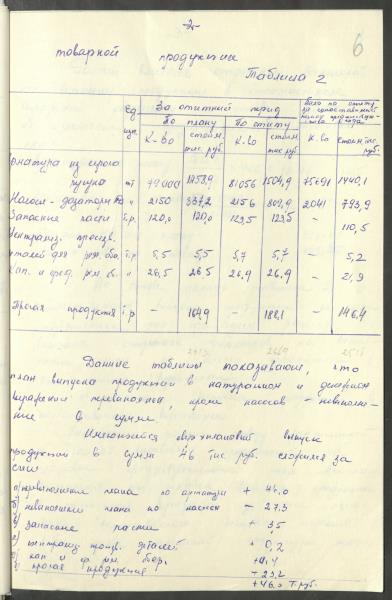 -2-
6
товарной продукции
Таблица 2
Ед. изм.
За отчетный период
По плану
По отчету
К-во
стоим. тыс. руб.
К-во
стоим. тыс. руб.
К-во
Стоим. тыс. руб.
Арматура из серого
чугуна шт 79000 1458,9 81056 1504,9 75691 1440,1
2150 837,2 2156 809,9 2041 793,9
Запасные части т.р. 120,0 120,0 123,5 123,5 – 110,5
Централиз. произв.
5,5 5,5 5,7 5,7 – 5,2
26,5 26,5 26,9 26,9 –
Прочая продукция т.р – 164,9 – 188,1 – 146,4
Данные таблицы показывают, что
план выпуска продукции в натуральном и денежном
выражении перевыполнен, кроме насосов – невыполне-
ние в сумме
Имеющийся сверхплановый выпуск
продукции в сумме 46 тыс. руб. сложился за
счет
а) перевыполнение плана по арматуре + 46.0
б) невыполнение плана по насосам – 27.3
в) запасные части + 3,5
г) централиз. произв. деталей + 0,2
+0,4
прочая продукция + 23,2
+46,0 т.руб.